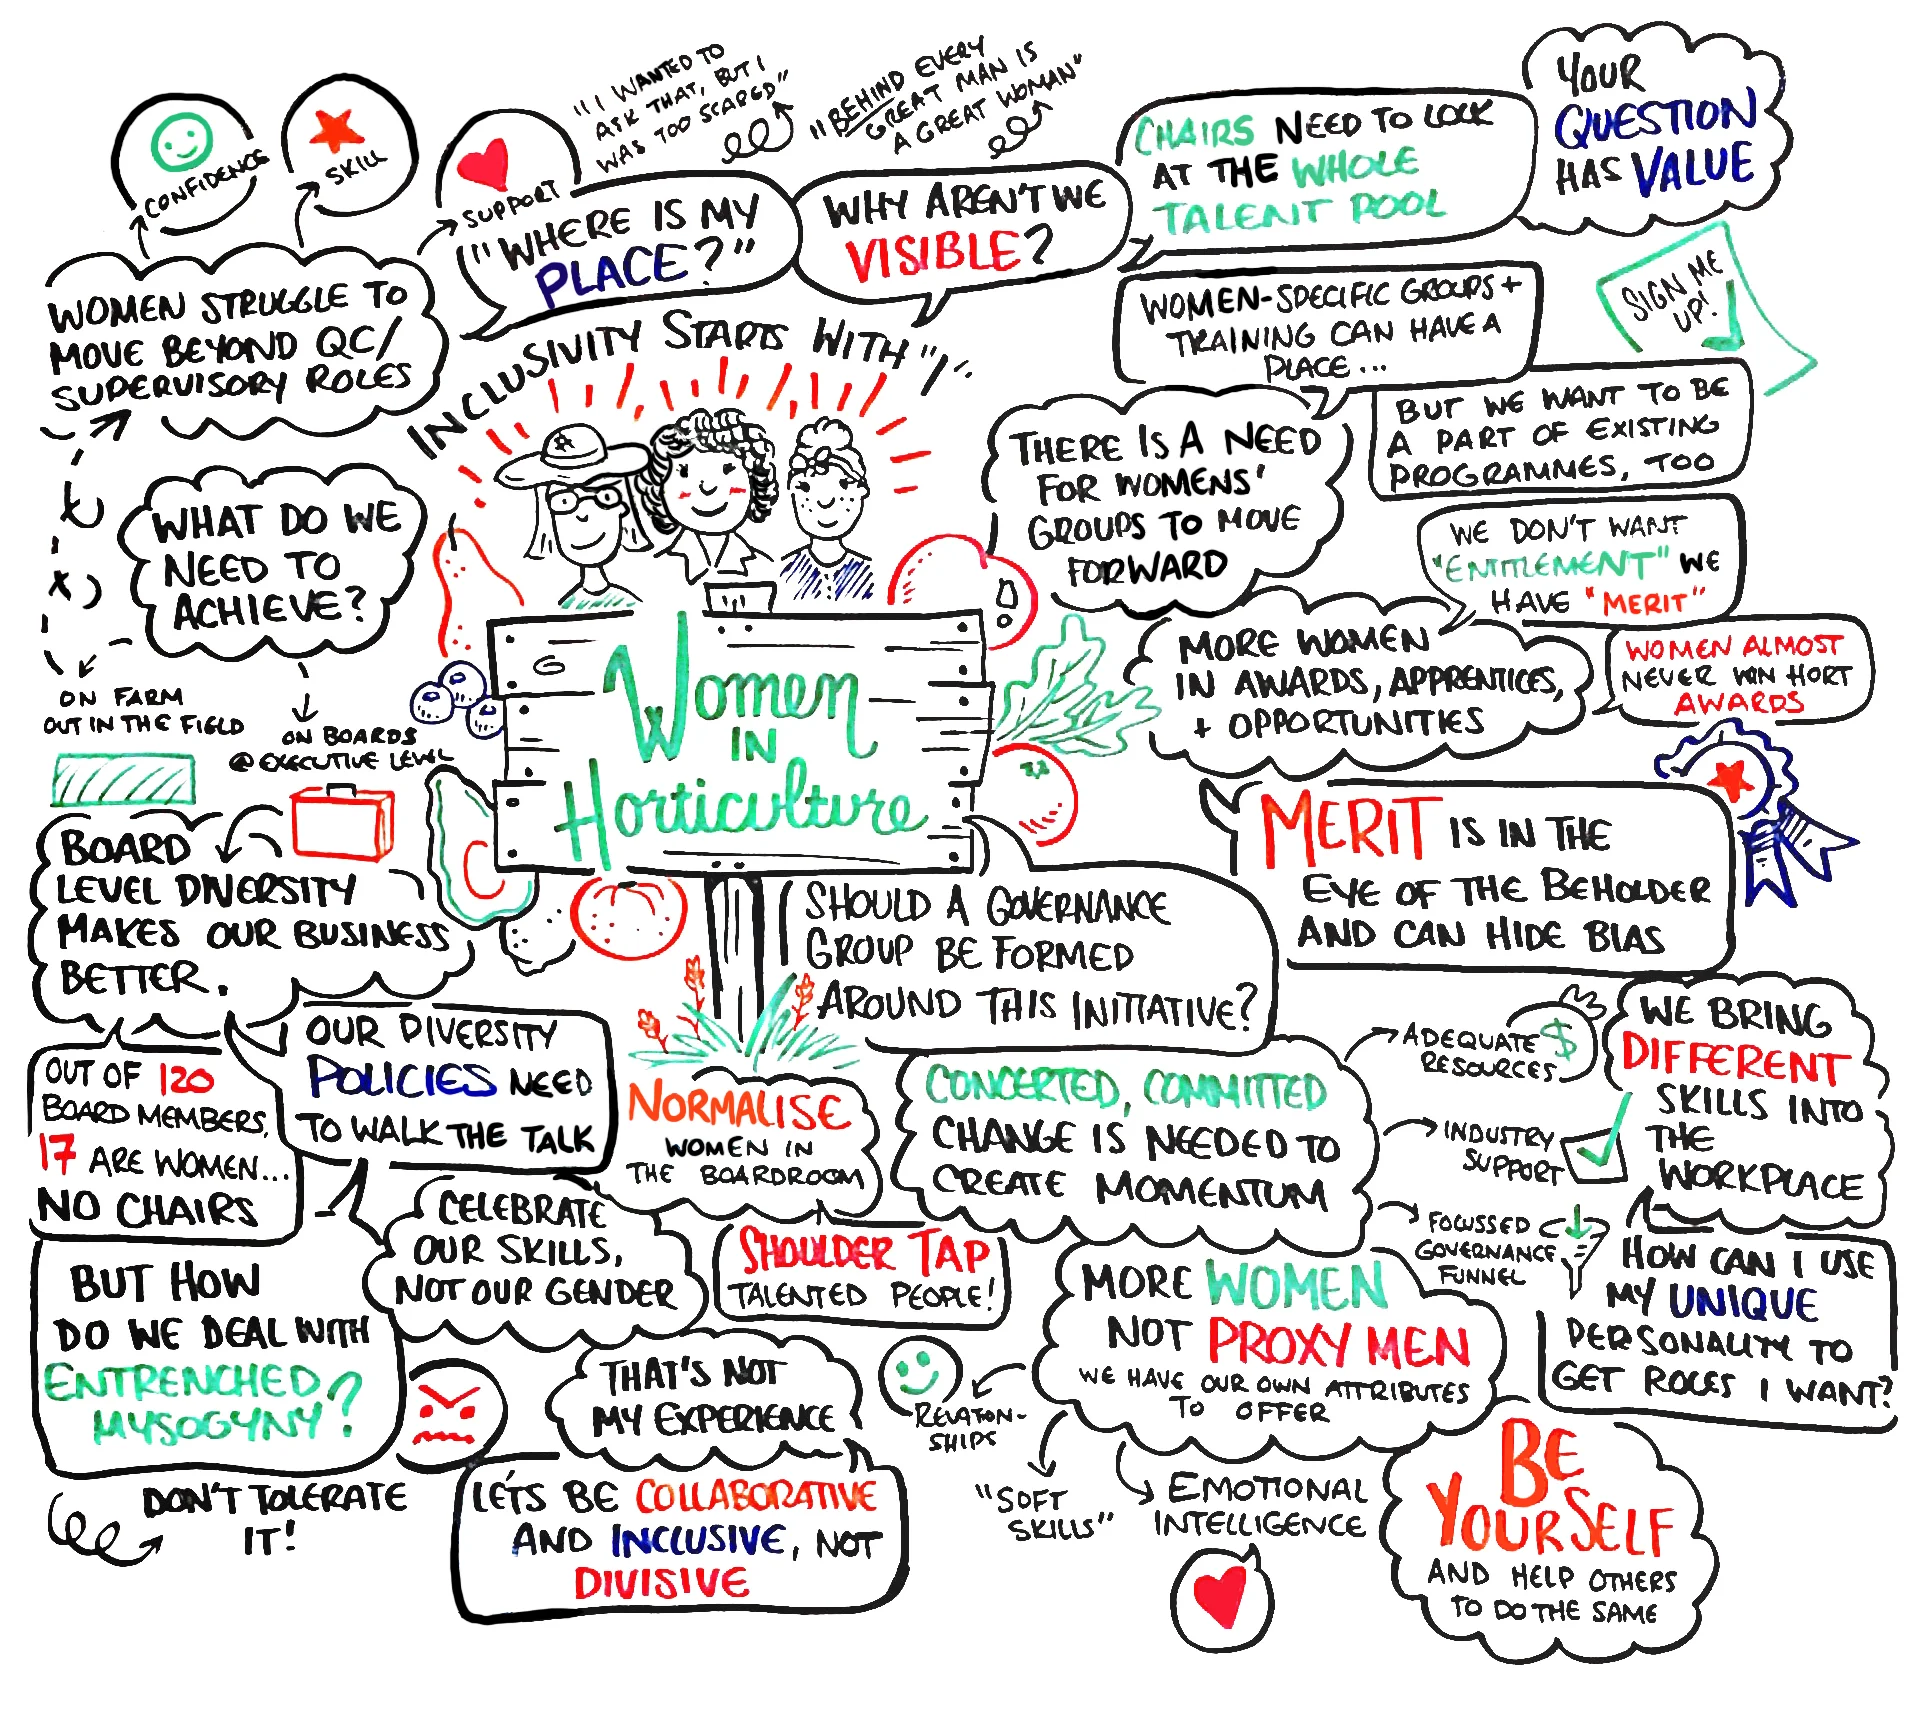 CONFIDENCE
SKILL
SUPPORT
"I WANTED TO
ASK THAT, BUT I
WAS TOO SCARED"
"BEHIND EVERY
GREAT MAN IS
A GREAT WOMAN"
WOMEN STRUGGLE TO
MOVE BEYOND QC/
SUPERVISORY ROLES
"WHERE IS MY
PLACE?"
WHY AREN'T WE
VISIBLE?
CHAIRS NEED TO LOOK
AT THE WHOLE
TALENT POOL
YOUR
QUESTION
HAS VALUE
WOMEN-SPECIFIC GROUPS +
TRAINING CAN HAVE A
PLACE...
SIGN ME
UP!
BUT WE WANT TO BE
A PART OF EXISTING
PROGRAMMES, TOO
INCLUSIVITY STARTS WITH "I"
THERE IS A NEED
FOR WOMENS'
GROUPS TO MOVE
FORWARD
WE DON'T WANT
"ENTITLEMENT" WE
HAVE "MERIT"
WHAT DO WE
NEED TO
ACHIEVE?
ON FARM
OUT IN THE FIELD
ON BOARDS
@ EXECUTIVE LEVEL
WOMEN
IN
HORTICULTURE
MORE WOMEN
IN AWARDS, APPRENTICES,
+ OPPORTUNITIES
WOMEN ALMOST
NEVER WIN HORT
AWARDS
MERIT IS IN THE
EYE OF THE BEHOLDER
AND CAN HIDE BIAS
BOARD
LEVEL DIVERSITY
MAKES OUR BUSINESS
BETTER.
SHOULD A GOVERNANCE
GROUP BE FORMED
AROUND THIS INITIATIVE?
OUT OF 120
BOARD MEMBERS,
17 ARE WOMEN...
NO CHAIRS
OUR DIVERSITY
POLICIES NEED
TO WALK THE TALK
NORMALISE
WOMEN IN
THE BOARDROOM
CONCERTED, COMMITTED
CHANGE IS NEEDED TO
CREATE MOMENTUM
ADEQUATE
RESOURCES
$
INDUSTRY
SUPPORT
FOCUSSED
GOVERNANCE
FUNNEL
WE BRING
DIFFERENT
SKILLS INTO
THE
WORKPLACE
HOW CAN I USE
MY UNIQUE
PERSONALITY TO
GET ROLES I WANT?
BUT HOW
DO WE DEAL WITH
ENTRENCHED
MYSOGYNY?
DON'T TOLERATE
IT!
CELEBRATE
OUR SKILLS,
NOT OUR GENDER
SHOULDER TAP
TALENTED PEOPLE!
THAT'S NOT
MY EXPERIENCE
LET'S BE COLLABORATIVE
AND INCLUSIVE, NOT
DIVISIVE
MORE WOMEN
NOT PROXY MEN
WE HAVE OUR OWN ATTRIBUTES
TO OFFER
RELATION-
SHIPS
"SOFT
SKILLS"
EMOTIONAL
INTELLIGENCE
BE
YOURSELF
AND HELP OTHERS
TO DO THE SAME